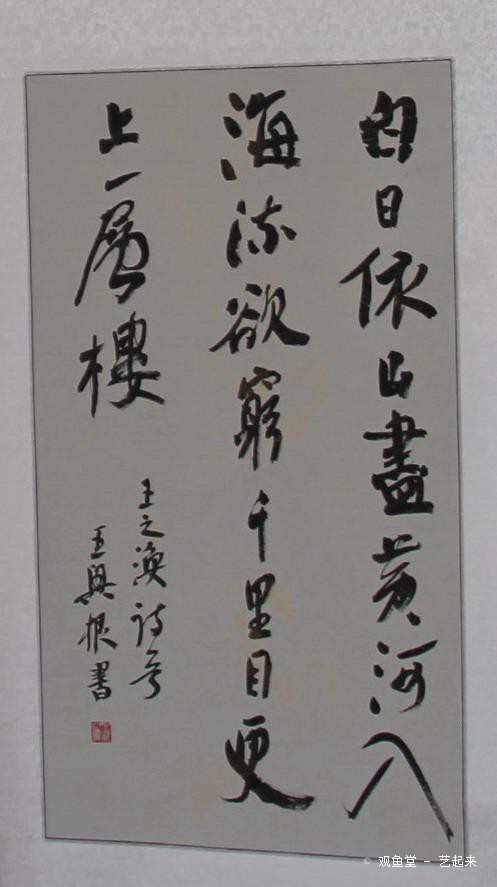 白日依山盡黄河入
海流欲窮千里目更
上一層樓
王之渙詩意
王興根書
© 观鱼堂 - 艺起来